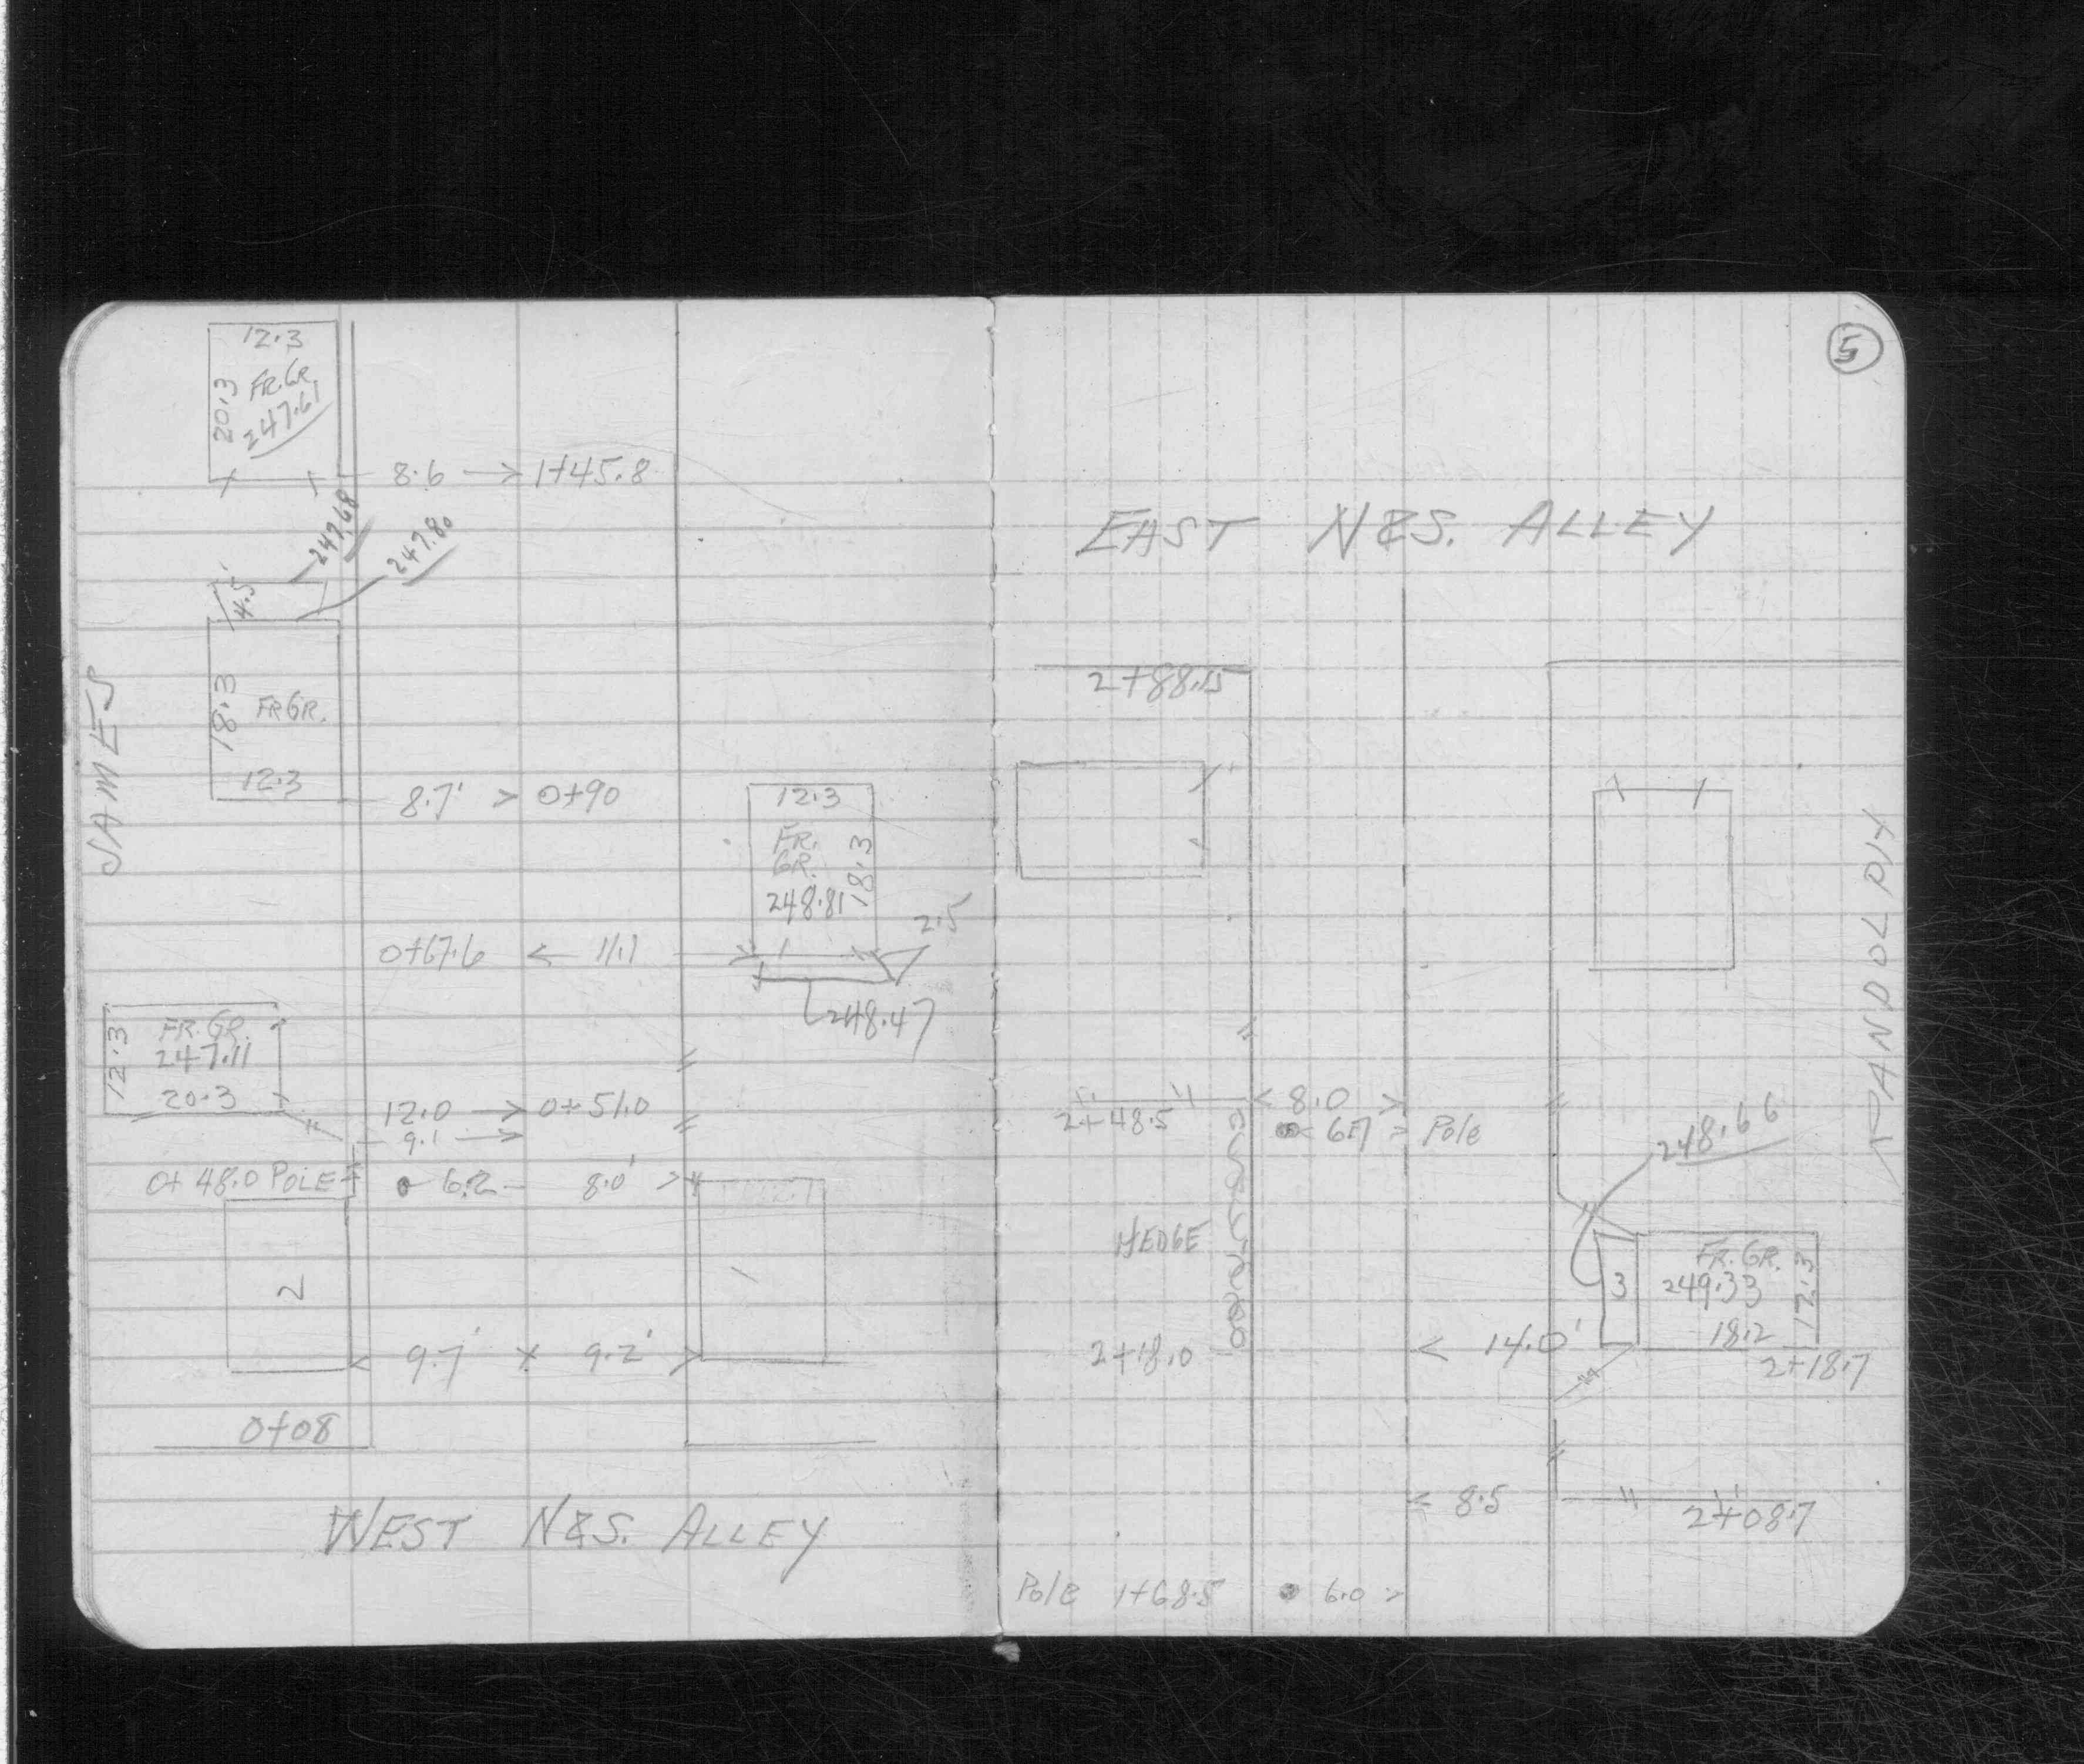 12.3
FR.GR.
20.3
247.61
8.6 → 1+45.8
247.68
247.80
4.5'
18.3
FR GR.
12.3
JAMES
8.7' > 0+90
12.3
FR.
GR.
18.3
248.81
2.5
0+67.6 < 11.1
248.47
12.3
FR. GR.
247.11
20.3
12.0 → 0+51.0
9.1 →
0+48.0 POLE 6.2 8.0' >
2
9.7' × 9.2' >
0+08
WEST N&S. ALLEY
5
EAST N&S. ALLEY
2+88.15
RANDOLPH
< 8.0 >
2+48.5
Pole
248.66
HEDGE
FR. GR.
3 249.33
12.3
18.2
2+18.0 < 14.0'
2+18.7
< 8.5
2+08.7
Pole 1+68.5 6.0 >